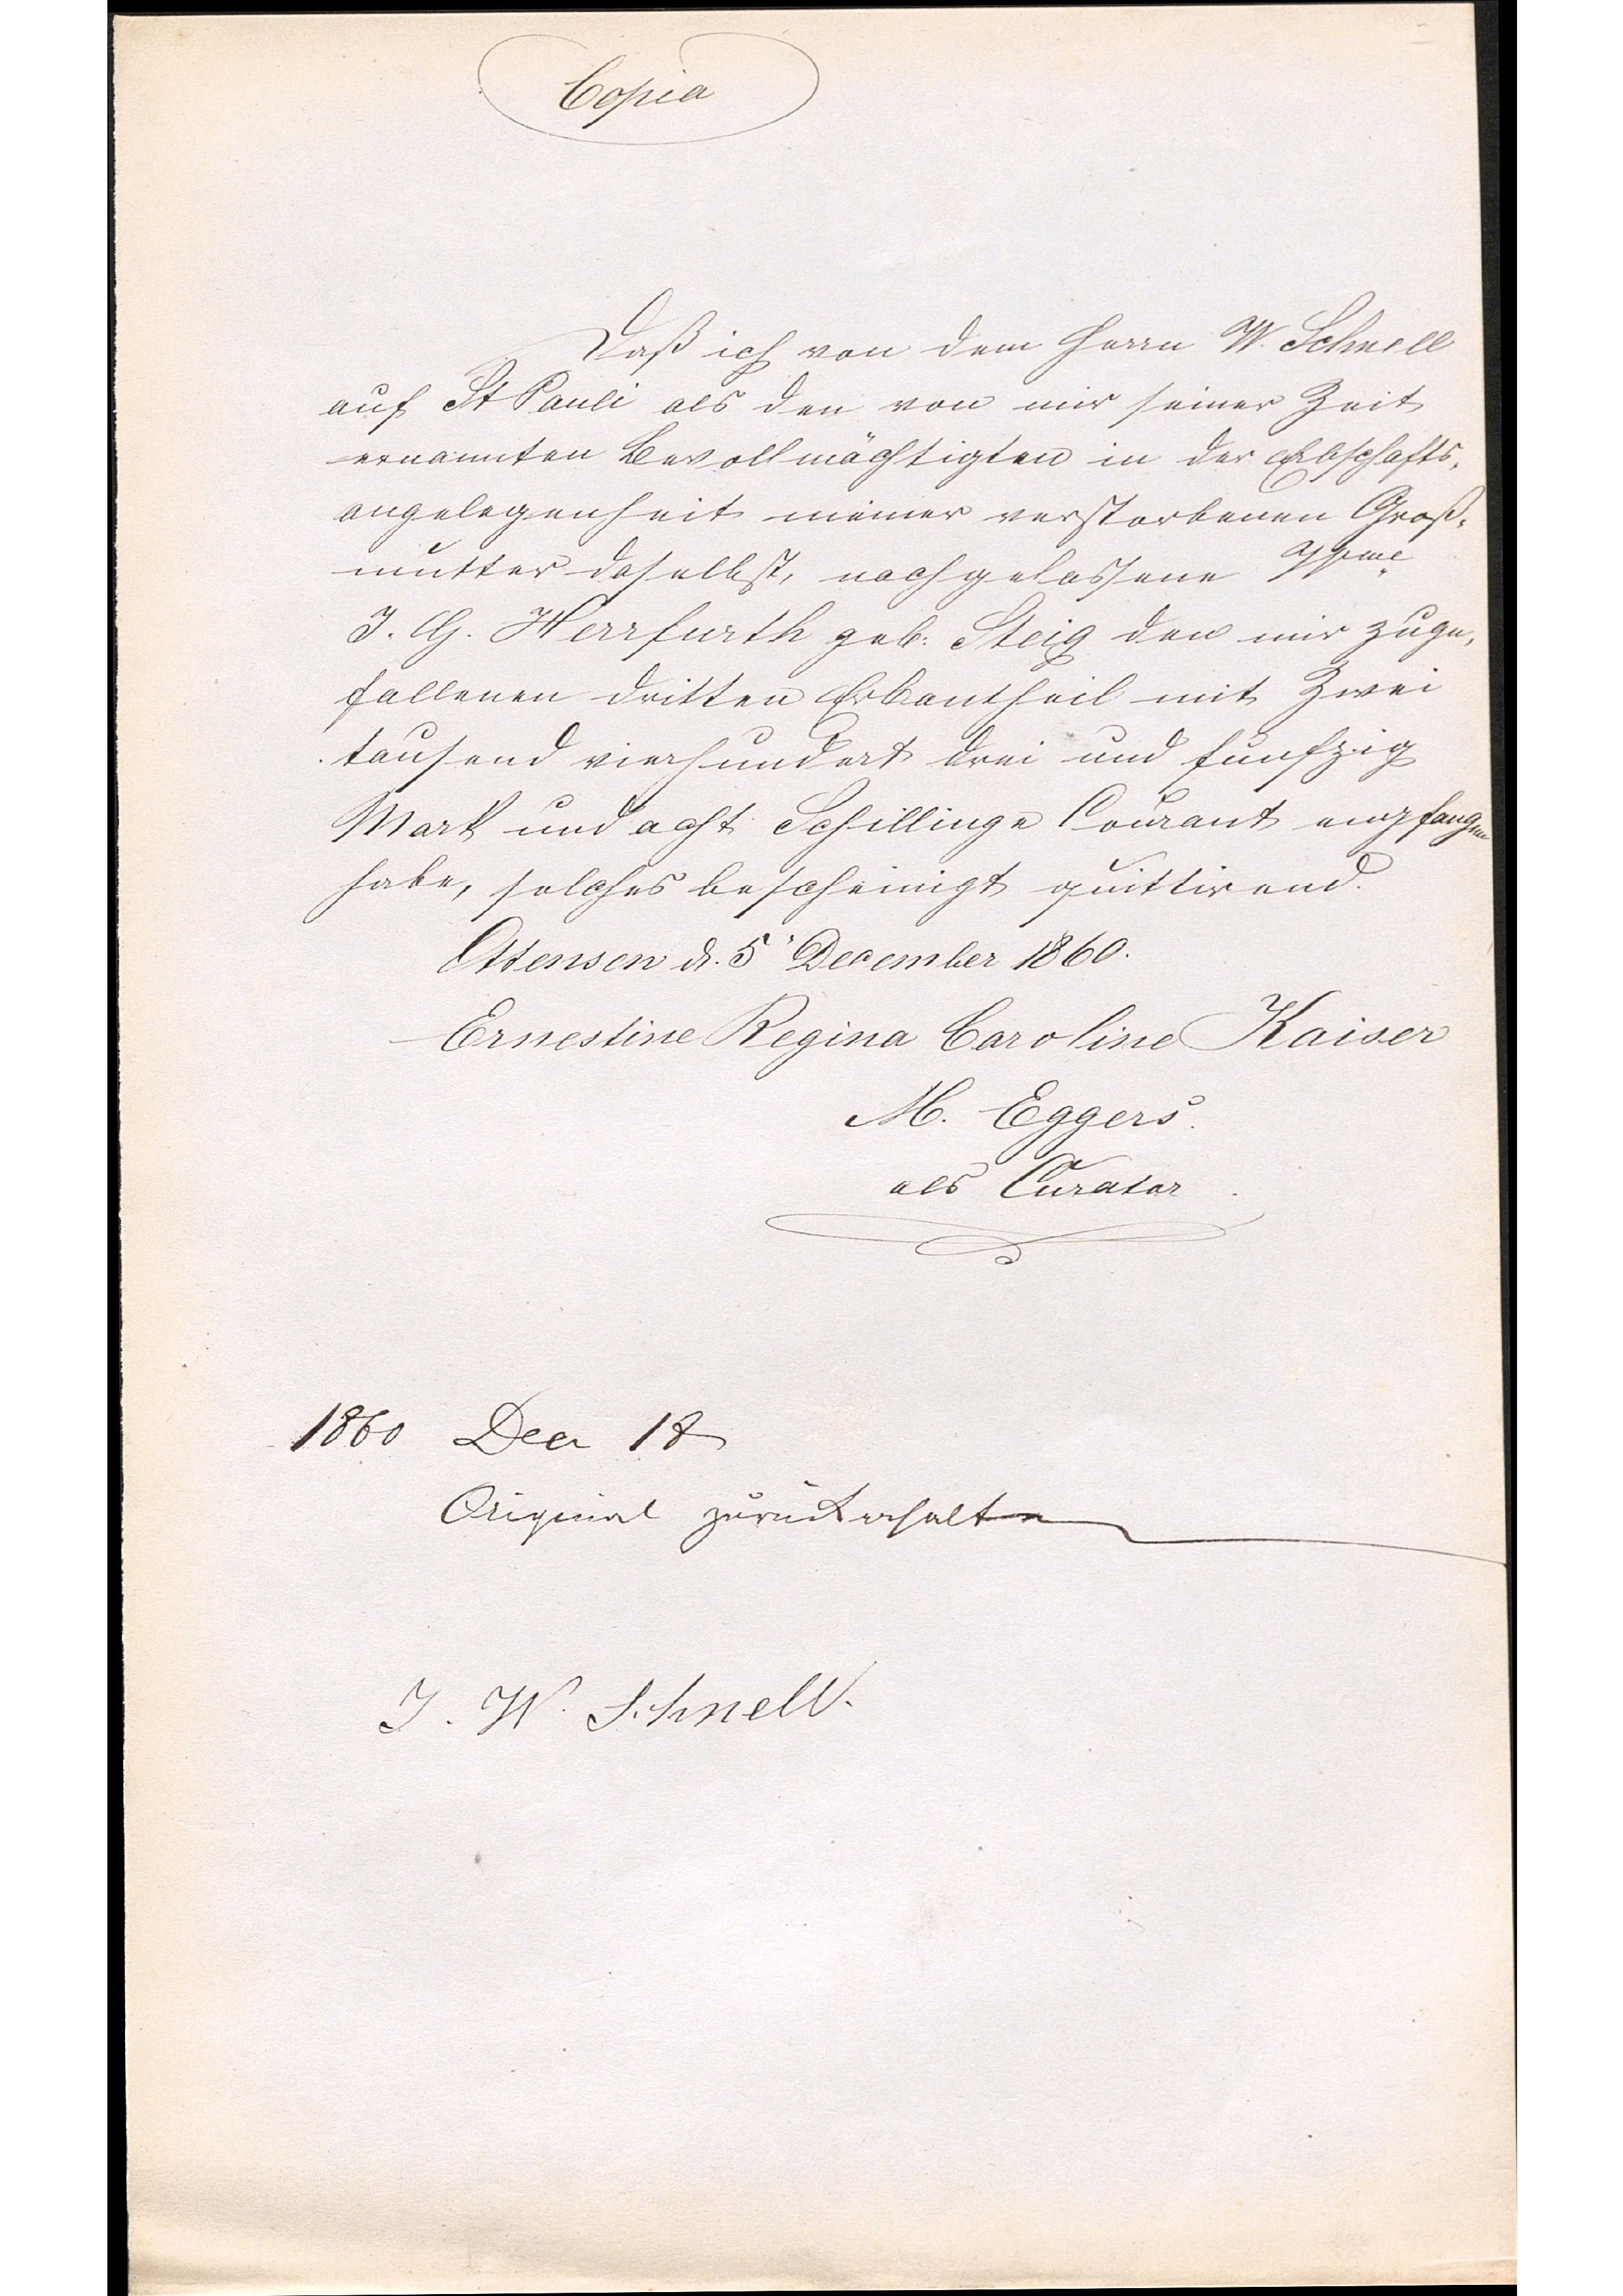 Copia
Daß ich von dem Herrn W. Schnell
auf St Pauli als den von mir seiner Zeit
ernannten Bevollmächtigten in der Erbschafts-
angelegenheit meiner verstorbenen Groß-
mutter daselbst, nachgelassene
J. G. Herrfurth geb. Steig den mir zuge-
fallenen dritten Erbantheil mit Zwei
tausend vierhundert drei und funfzig
Mark und acht Schillinge Courant empfangen
habe, solches bescheinigt quittirend.
Ottensen d. 5' December 1860.
Ernestine Regina Caroline Kaiser
M. Eggers.
als Curator.
1860 Decr 18
Original zurückerhalten
J. W. Schnell.